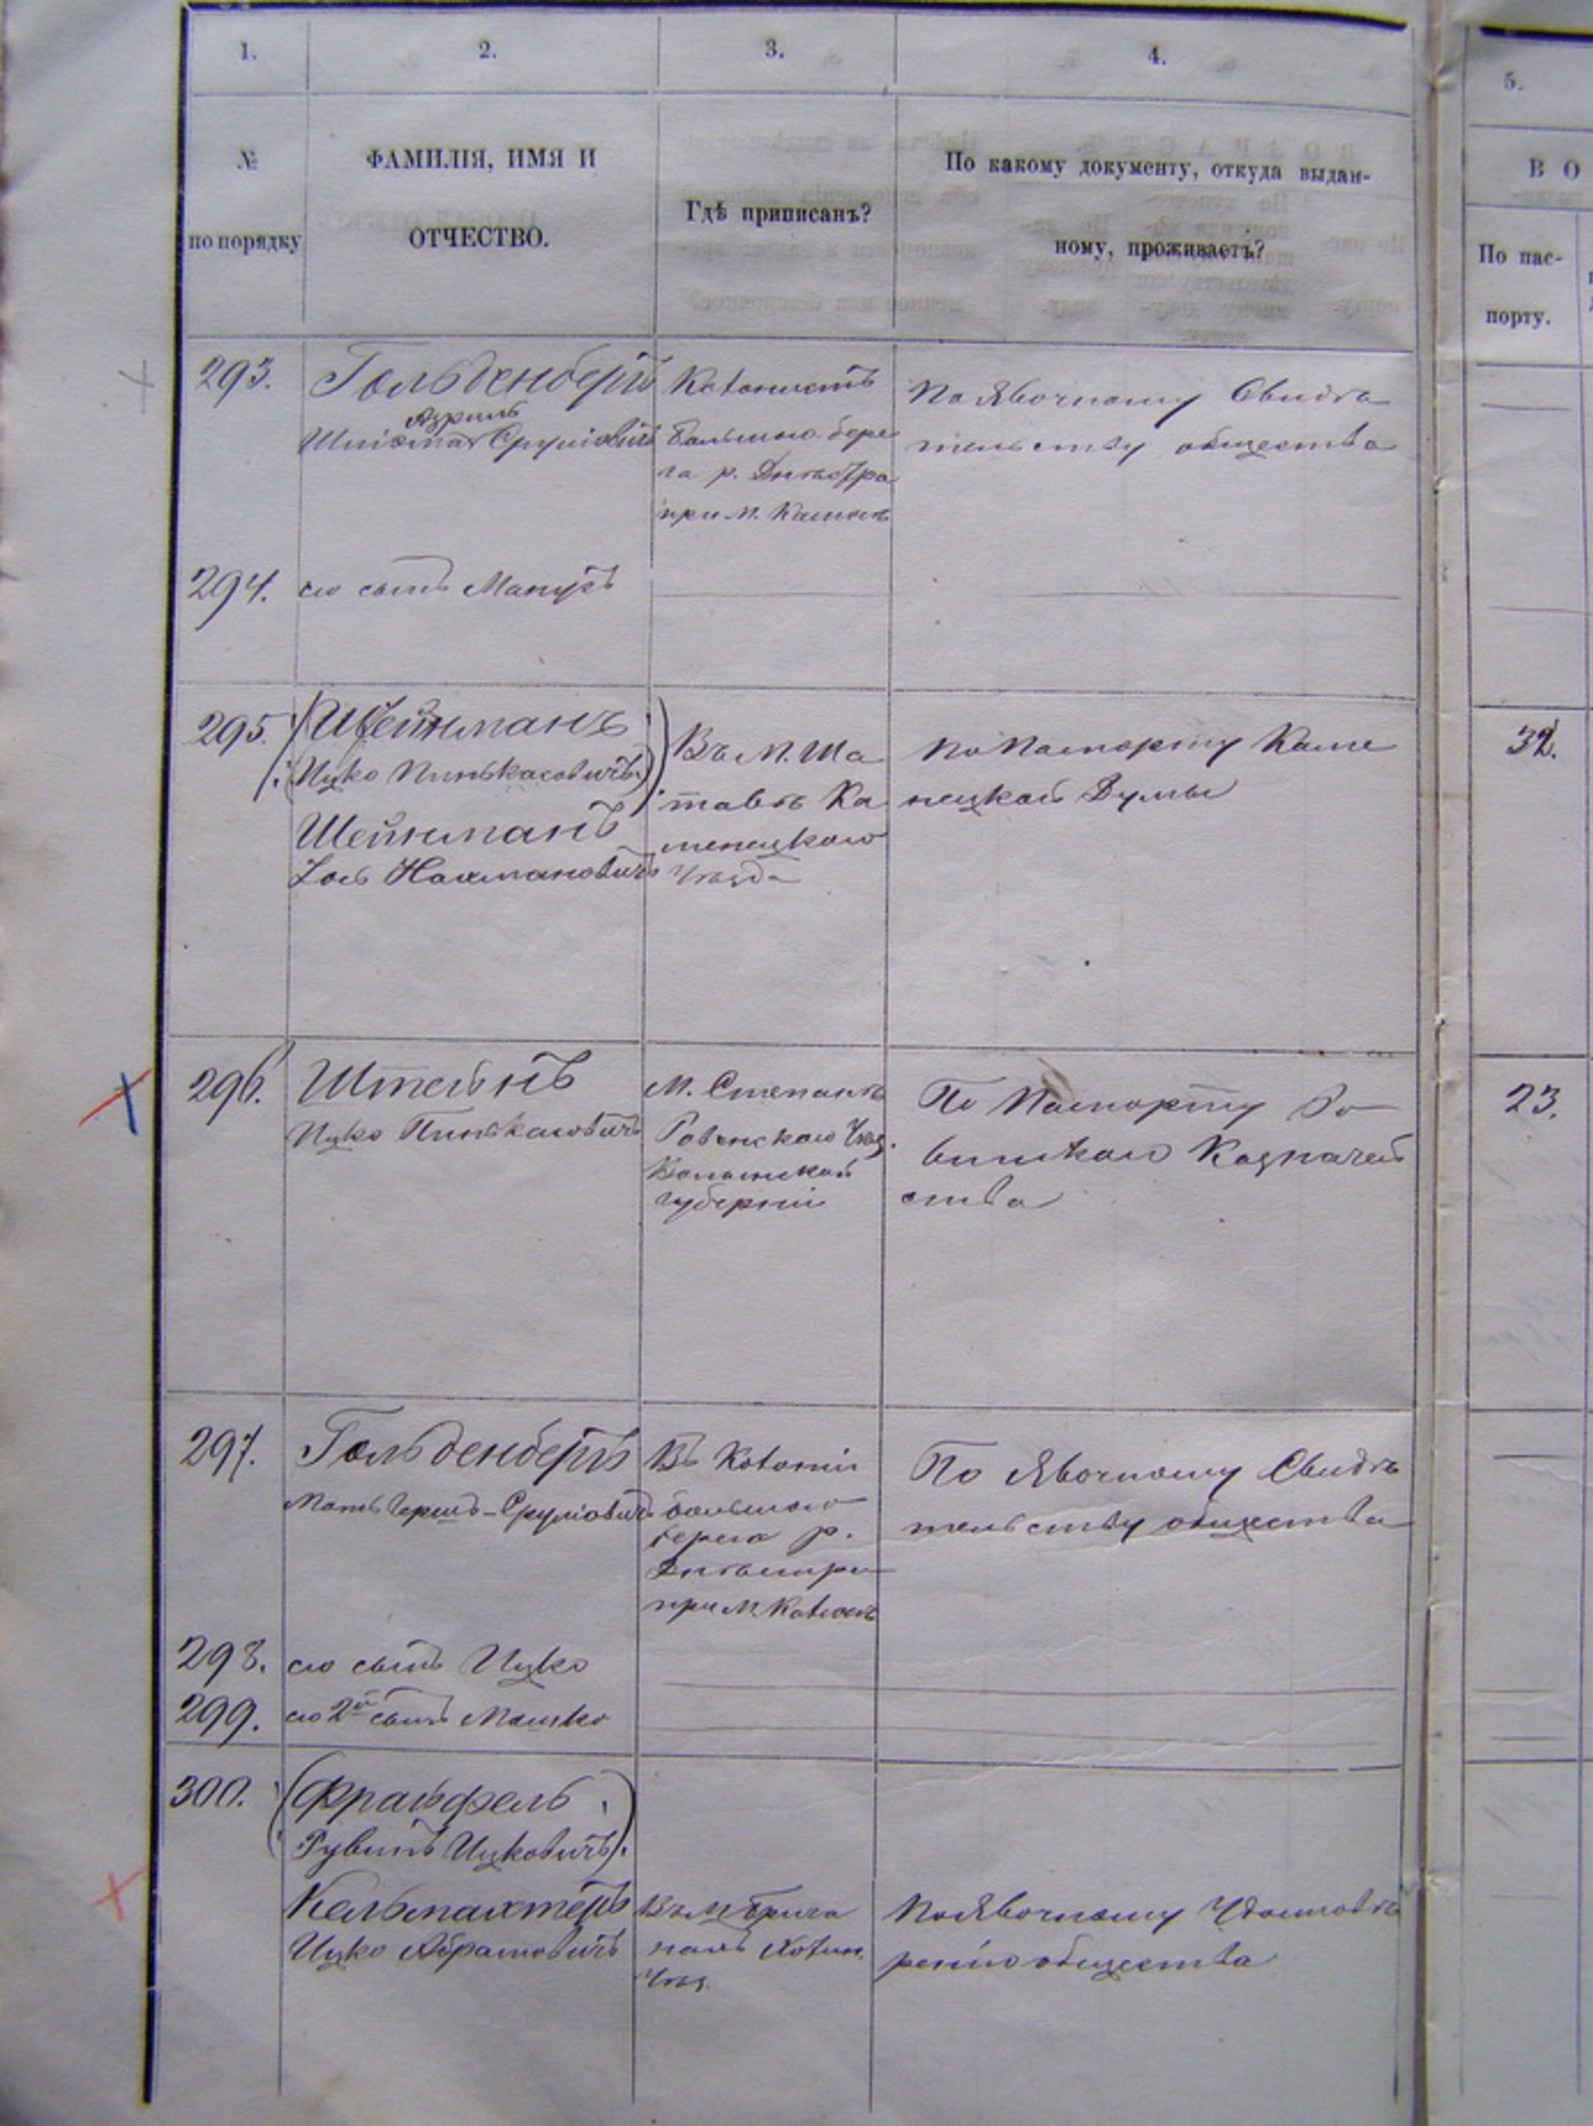 1.
2.
3.
4.
5.
№
по порядку
ФАМИЛІЯ, ИМЯ И
ОТЧЕСТВО.
Гдѣ приписанъ?
По какому документу, откуда выдан-
ному, проживаетъ?
В О
По пас-
порту.
293.
Гольденбергъ
Азриль
Сруліовичъ
р. Днѣстра
при м.
По Явочному Свидѣ
тельству общества
294.
его сынъ
295.
Шейнманъ
Ицко Пинькасовичъ
Шейнманъ
Іось Нахмановичъ
Въ М. Ша
тавѣ Ка
менецкого
Уѣзда
По Паспорту Каме
нецкой Думы
32.
296.
Штейнъ
Ицко Пинькасовичъ
М. Степань
Ровенского Уѣз.
Волынской
губерніи
По Паспорту Ро
Казначей
ства
23.
297.
Гольденбергъ
Сруліовичъ
Въ Колоніи
берега р.
Днѣстра
при М.
По Явочному Свидѣ
тельству общества
298.
его сынъ Ицко
299.
его 2й сынъ Мошко
300.
(Фральфель
Рувинъ Ицковичъ).
Кельмахтеръ
Ицко Абрамовичъ
Въ М. Брича
нахъ Хотин.
Уѣз.
По Явочному Удостовѣ
ренію общества